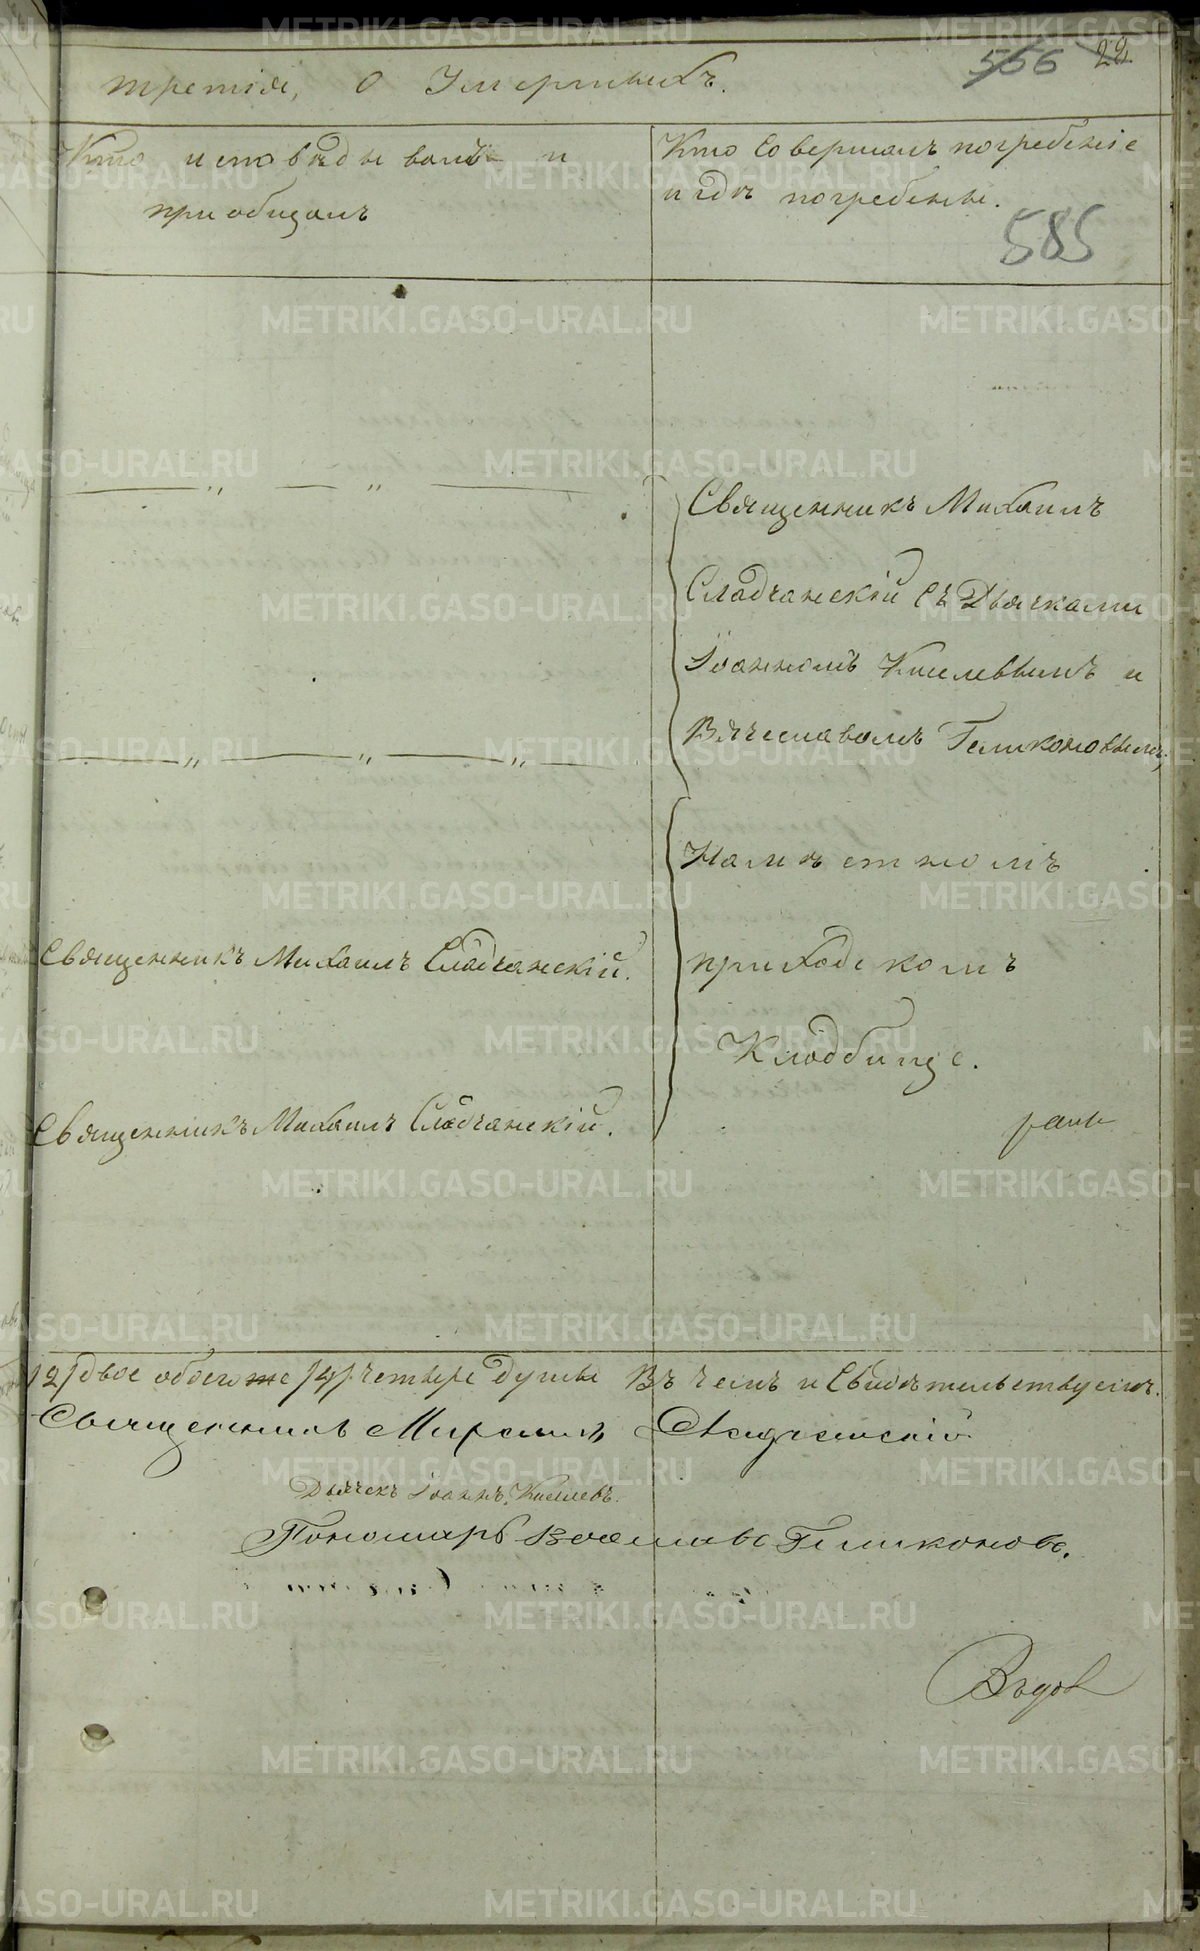 566 22
третія, О Умершихъ.
Кто исповѣдывалъ и
приобщалъ
Кто Совершалъ погребеніе
и гдѣ погребены.
585
Священникъ Михаилъ
Сладчанскій Съ Дьячками
Іоанномъ Киселевымъ и
Вячеславомъ Геликоновымъ,
На мѣстномъ
приходскомъ
Кладбище.
Священникъ Михаилъ Сладчанскій.
Священникъ Михаилъ Сладчанскій.
/2/ двое обоего же /4/ четыре души Въ чемъ и Свидѣтельствуемъ.
Священникъ Михаилъ Сладчанскій
Дьячекъ Іоаннъ Киселевъ.
Пономарь Вячеславъ Геликоновъ.
METRIKI.GASO-URAL.RU